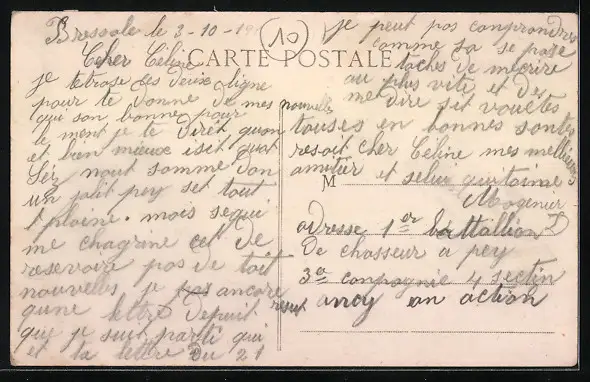 Bressole le 3-10-19
Cher Céline
CARTE POSTALE
10
je tetrase ces deux ligne
pour te donne de mes nouvelles
qui son bonne pour
le moment je te diret quon
et bien mieux isit quat
nout somme don
un jolit pey set tout
plaine. mois sequi
me chagrine cet de
reservoir pas de toit
nouvelles je pas ancore resut
qune lettre depuit
que je suit parti qui
et ta lettre du 21
je peut pas comprondres
comme sa se pase
taches de mecrire
au plus vite et des
me dire sit vouetes
touses en bonnes sontes
resoit cher Céline mes mellieures
amitier et
M
Mogenier
adresse 1er battallion
De chasseur a pey
3e conpagnie 4 sectin
anoy an action